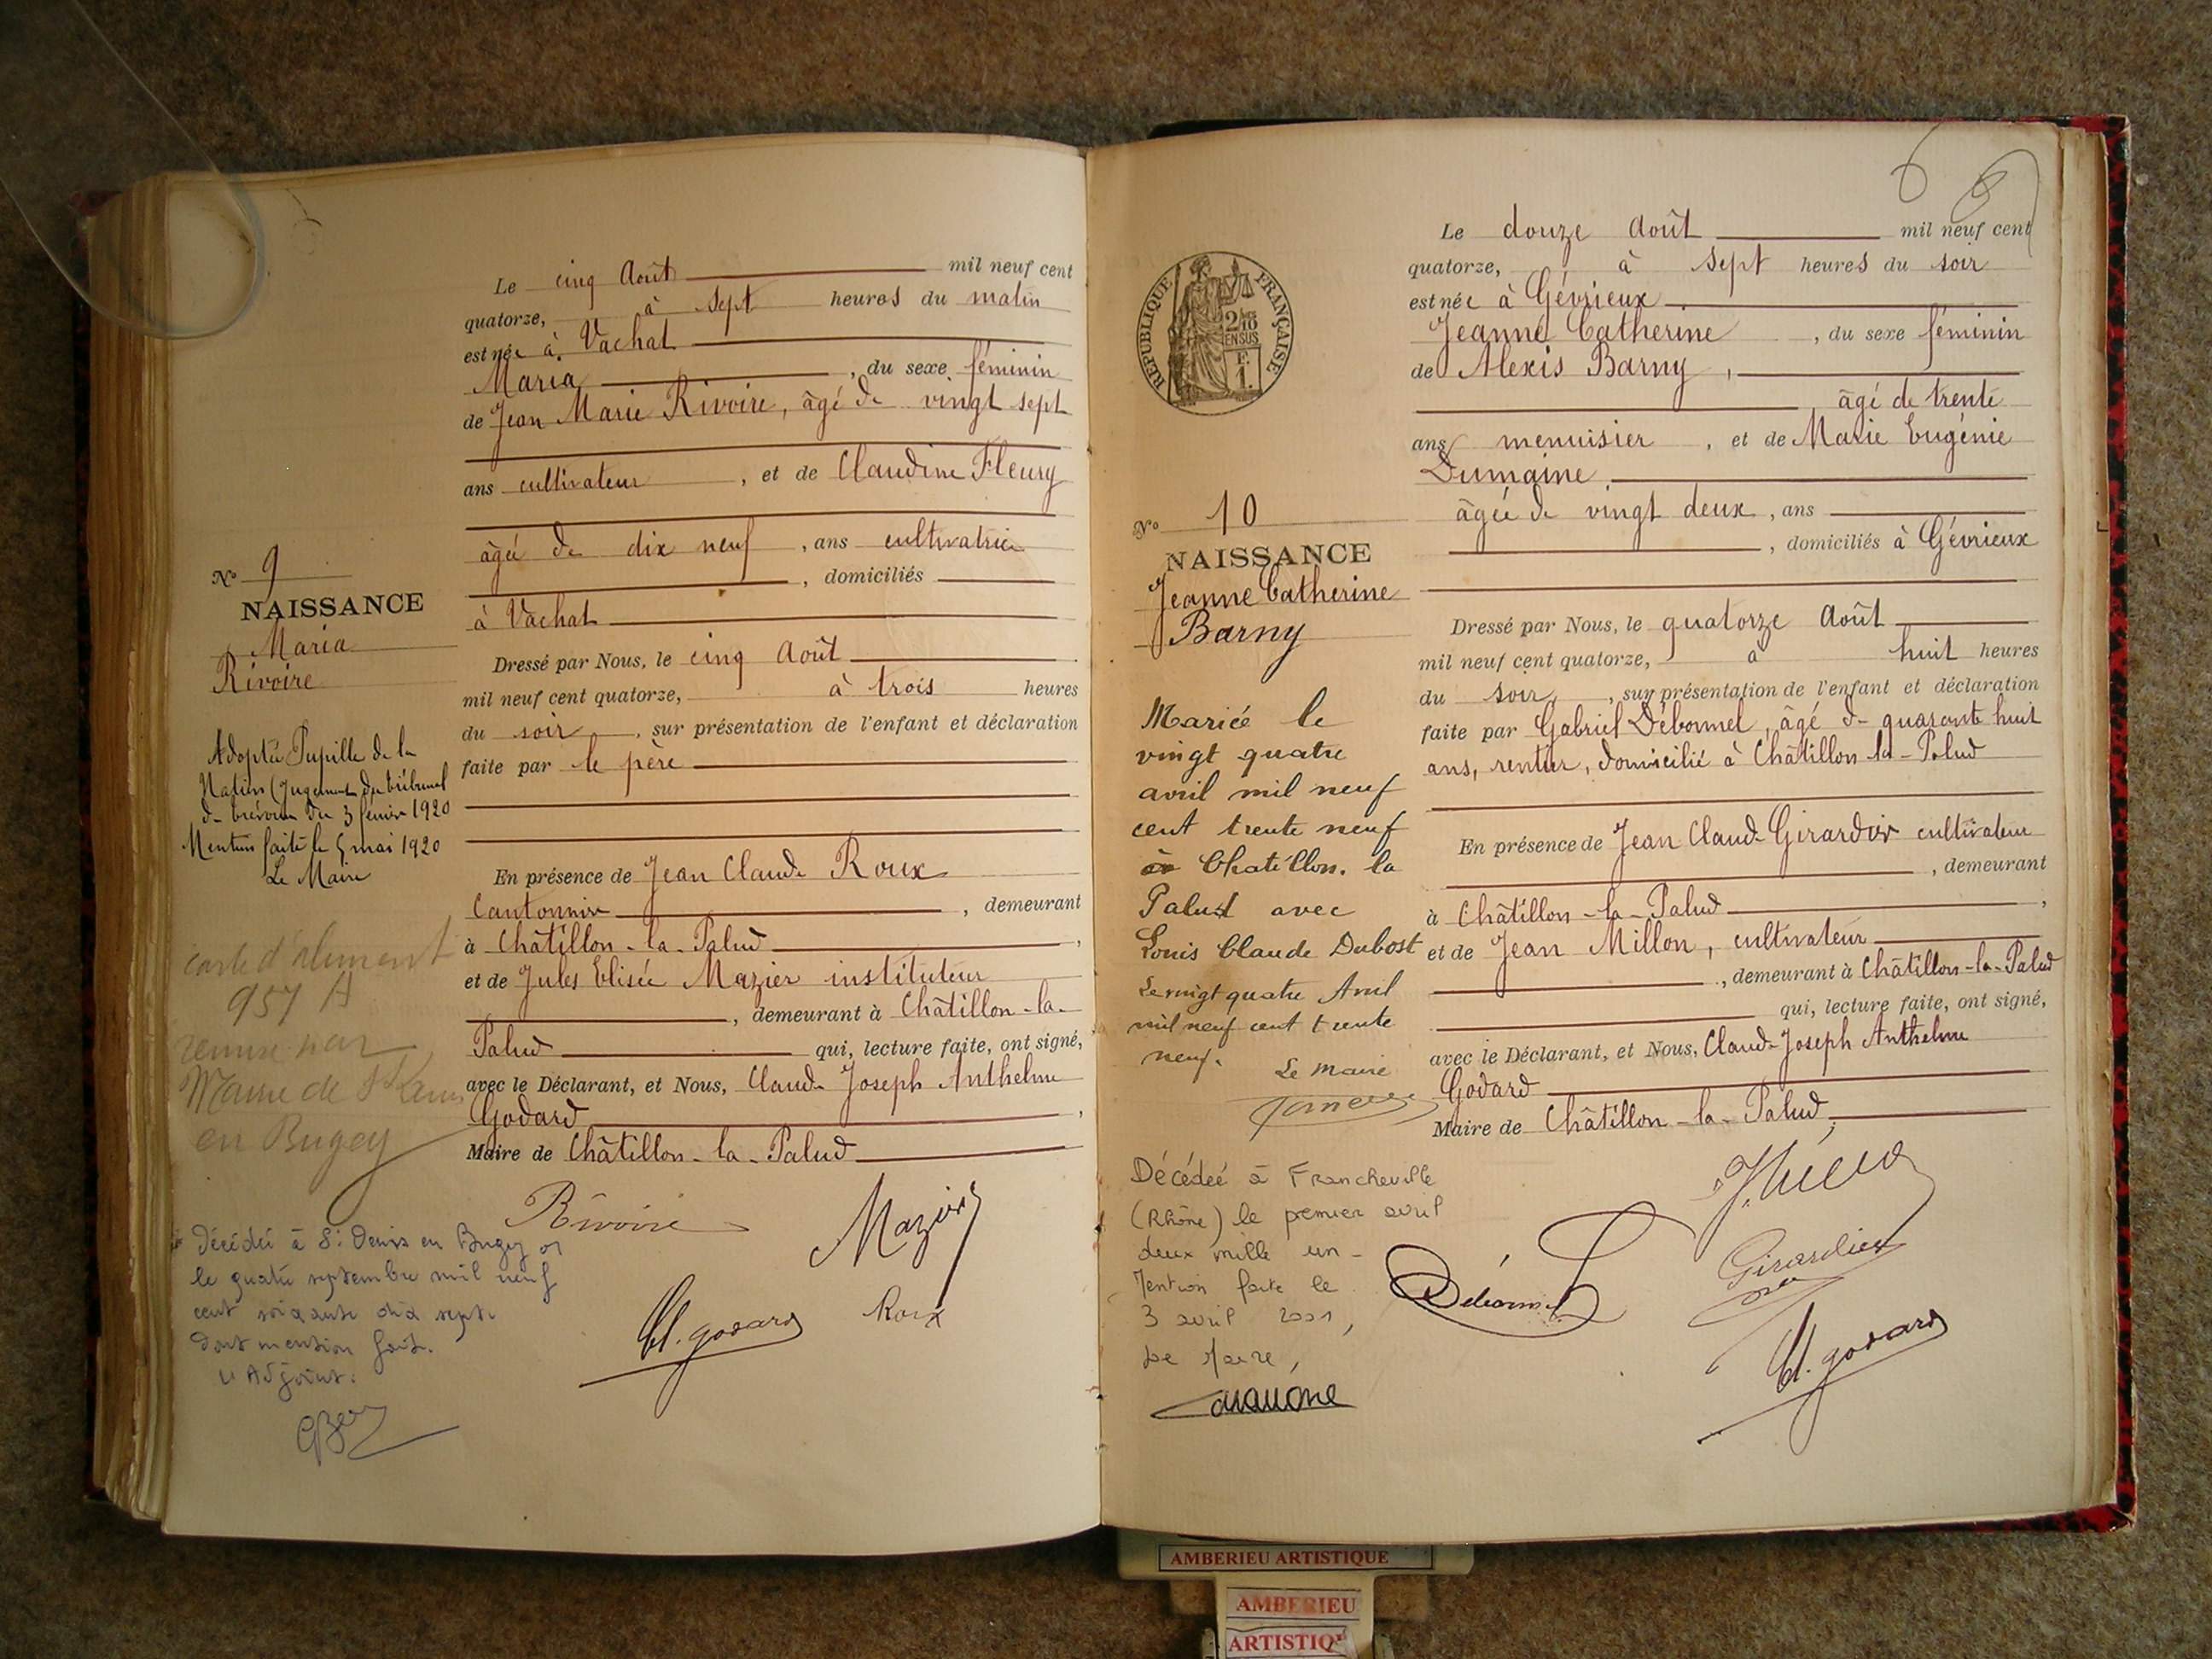 Le cinq Août mil neuf cent
quatorze, à sept heures du matin
est née à Vachat
Maria, du sexe féminin
de Jean Marie Rivoire, âgé de vingt sept
ans cultivateur, et de Claudine Fleury
âgée de dix neuf, ans cultivatrice
, domiciliés
à Vachat
Dressé par Nous, le cinq Août
mil neuf cent quatorze, à trois heures
du soir, sur présentation de l'enfant et déclaration
faite par le père
En présence de Jean Claude Roux
Cantonnier, demeurant
à Châtillon-la-Palud,
et de Jules Elisée Mazier instituteur
, demeurant à Châtillon-la-
Palud qui, lecture faite, ont signé,
avec le Déclarant, et Nous, Claude Joseph Anthelme
Godard,
Maire de Châtillon-la-Palud
Rivoire
Mazier
Cl. Godard
Roux
No 9
NAISSANCE
Maria
Rivoire
Adoptée Pupille de la
Nation (Jugement du tribunal
de Trévoux du 3 février 1920
Mention faite le 5 mai 1920
Le Maire
957 A
remise par
Mairie de St Denis
en Bugey
Décédée à St Denis en Bugey
le quatre septembre mil neuf
cent soixante dix sept
dont mention faite.
L'Adjoint.
Le douze Août mil neuf cent
quatorze, à sept heures du soir
est née à Gévrieux
Jeanne Catherine, du sexe féminin
de Alexis Barny,
âgé de trente
ans menuisier, et de Marie Eugénie
Dumaine
âgée de vingt deux, ans
, domiciliés à Gévrieux
Dressé par Nous, le quatorze Août
mil neuf cent quatorze, à huit heures
du soir, sur présentation de l'enfant et déclaration
faite par Gabriel Débonnel, âgé de quarante huit
ans, rentier, domicilié à Châtillon-la-Palud
En présence de Jean Claude Girardier cultivateur
, demeurant
à Châtillon-la-Palud,
et de Jean Millon, cultivateur
, demeurant à Châtillon-la-Palud
qui, lecture faite, ont signé,
avec le Déclarant, et Nous, Claude Joseph Anthelme
Godard
Maire de Châtillon-la-Palud
Girardier
Cl. Godard
REPUBLIQUE FRANÇAISE
No 10
NAISSANCE
Jeanne Catherine
Barny
Mariée le
vingt quatre
avril mil neuf
cent trente neuf
à Chatillon. la
Palud avec
Louis Claude Dubost
Le vingt quatre Avril
mil neuf cent trente
neuf.
Le maire
Décédée à Francheville
(Rhône) le premier avril
deux mille un -
Mention faite le
3 avril 2001,
Le Maire,
AMBERIEU ARTISTIQUE
AMBERIEU
ARTISTIQ